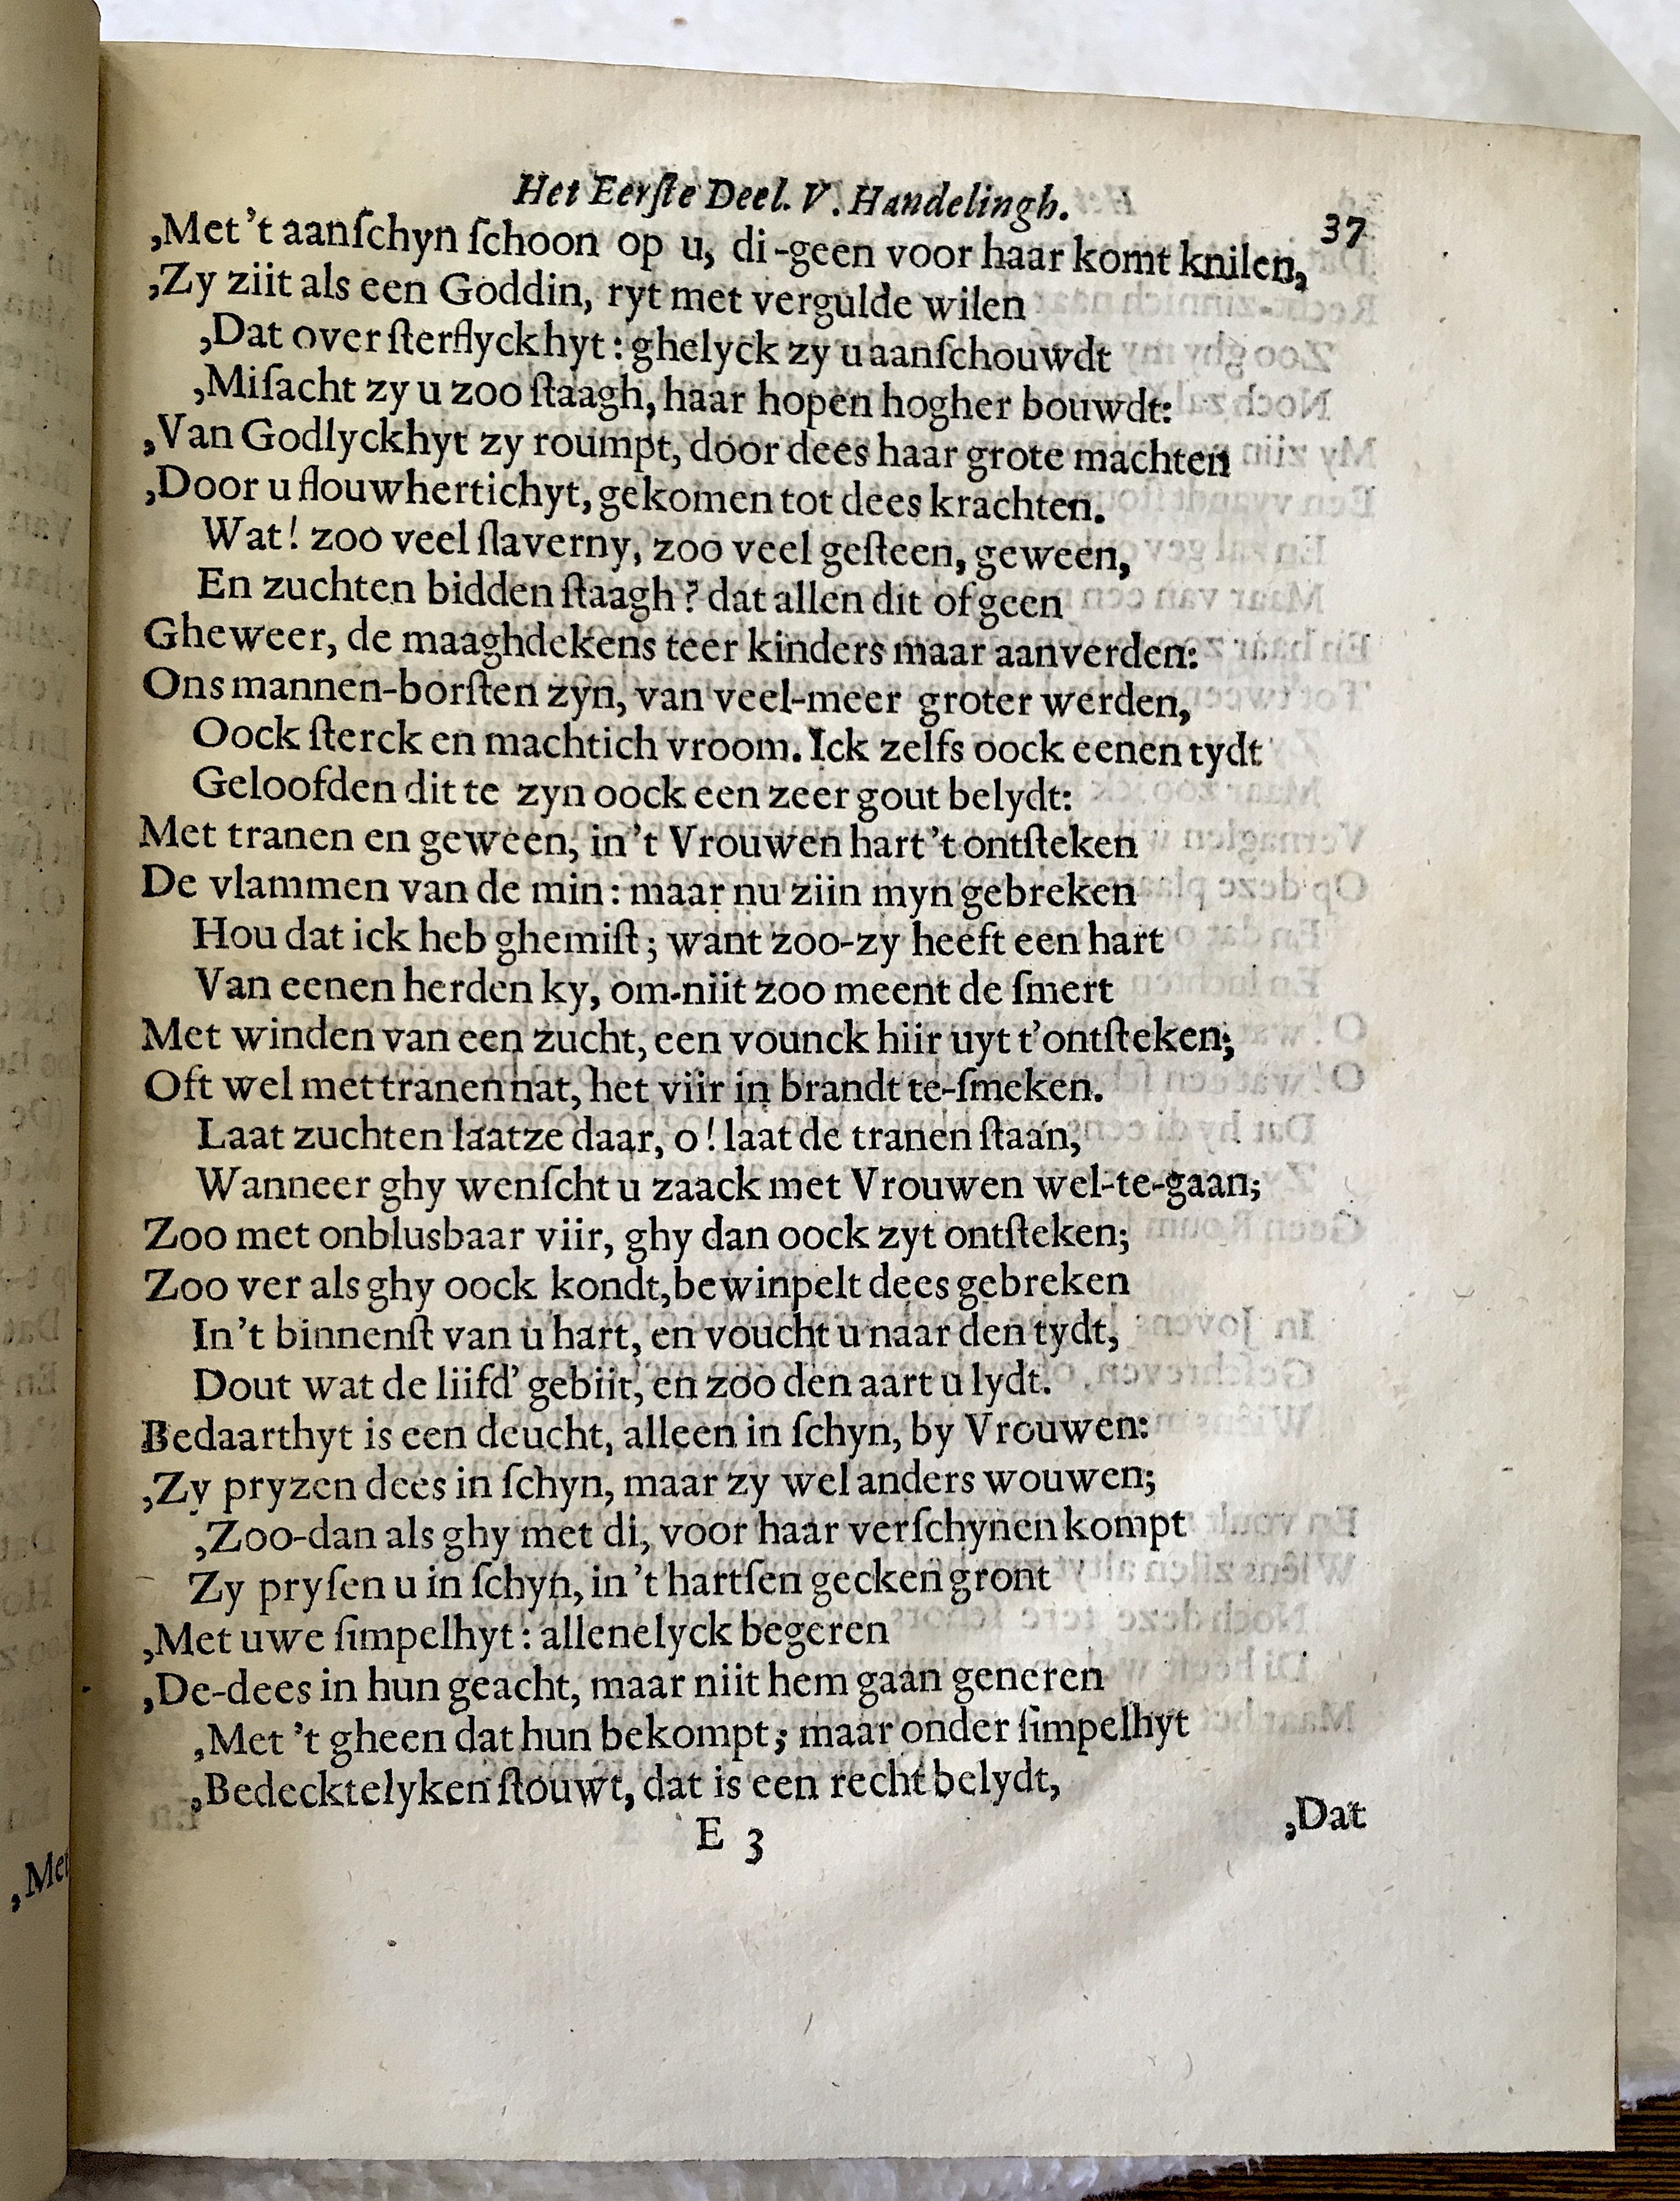 Het Eerſte Deel. V. Handelingh.
37
,Met 't aanſchyn ſchoon op u, di-geen voor haar komt knilen,
,Zy ziit als een Goddin, ryt met vergulde wilen
,Dat over ſterflyckhyt: ghelyck zy u aanſchouwdt
,Miſacht zy u zoo ſtaagh, haar hopen hogher bouwdt:
,Van Godlyckhyt zy roumpt, door dees haar grote machten
,Door u flouwhertichyt, gekomen tot dees krachten.
Wat! zoo veel ſlaverny, zoo veel geſteen, geween,
En zuchten bidden ſtaagh? dat allen dit of geen
Gheweer, de maaghdekens teer kinders maar aanverden:
Ons mannen-borſten zyn, van veel-meer groter werden,
Oock ſterck en machtich vroom. Ick zelfs oock eenen tydt
Geloofden dit te zyn oock een zeer gout belydt:
Met tranen en geween, in't Vrouwen hart 't ontſteken
De vlammen van de min: maar nu ziin myn gebreken
Hou dat ick heb ghemiſt; want zoo-zy heeft een hart
Van eenen herden ky, om-niit zoo meent de ſmert
Met winden van een zucht, een vounck hiir uyt t'ontſteken;
Oft wel met tranen nat, het viir in brandt te-ſmeken.
Laat zuchten laatze daar, o! laat de tranen ſtaan,
Wanneer ghy wenſcht u zaack met Vrouwen wel-te-gaan;
Zoo met onblusbaar viir, ghy dan oock zyt ontſteken;
Zoo ver als ghy oock kondt, bewinpelt dees gebreken
In't binnenſt van u hart, en voucht u naar den tydt,
Dout wat de liifd' gebiit, en zoo den aart u lydt.
Bedaarthyt is een deucht, alleen in ſchyn, by Vrouwen:
,Zy pryzen dees in ſchyn, maar zy wel anders wouwen;
,Zoo-dan als ghy met di, voor haar verſchynen kompt
Zy pryſen u in ſchyn, in 't hartſen gecken gront
,Met uwe ſimpelhyt: allenelyck begeren
,De-dees in hun geacht, maar niit hem gaan generen
,Met 't gheen dat hun bekompt; maar onder ſimpelhyt
,Bedecktelyken ſtouwt, dat is een recht belydt,
E 3
,Dat
,Met